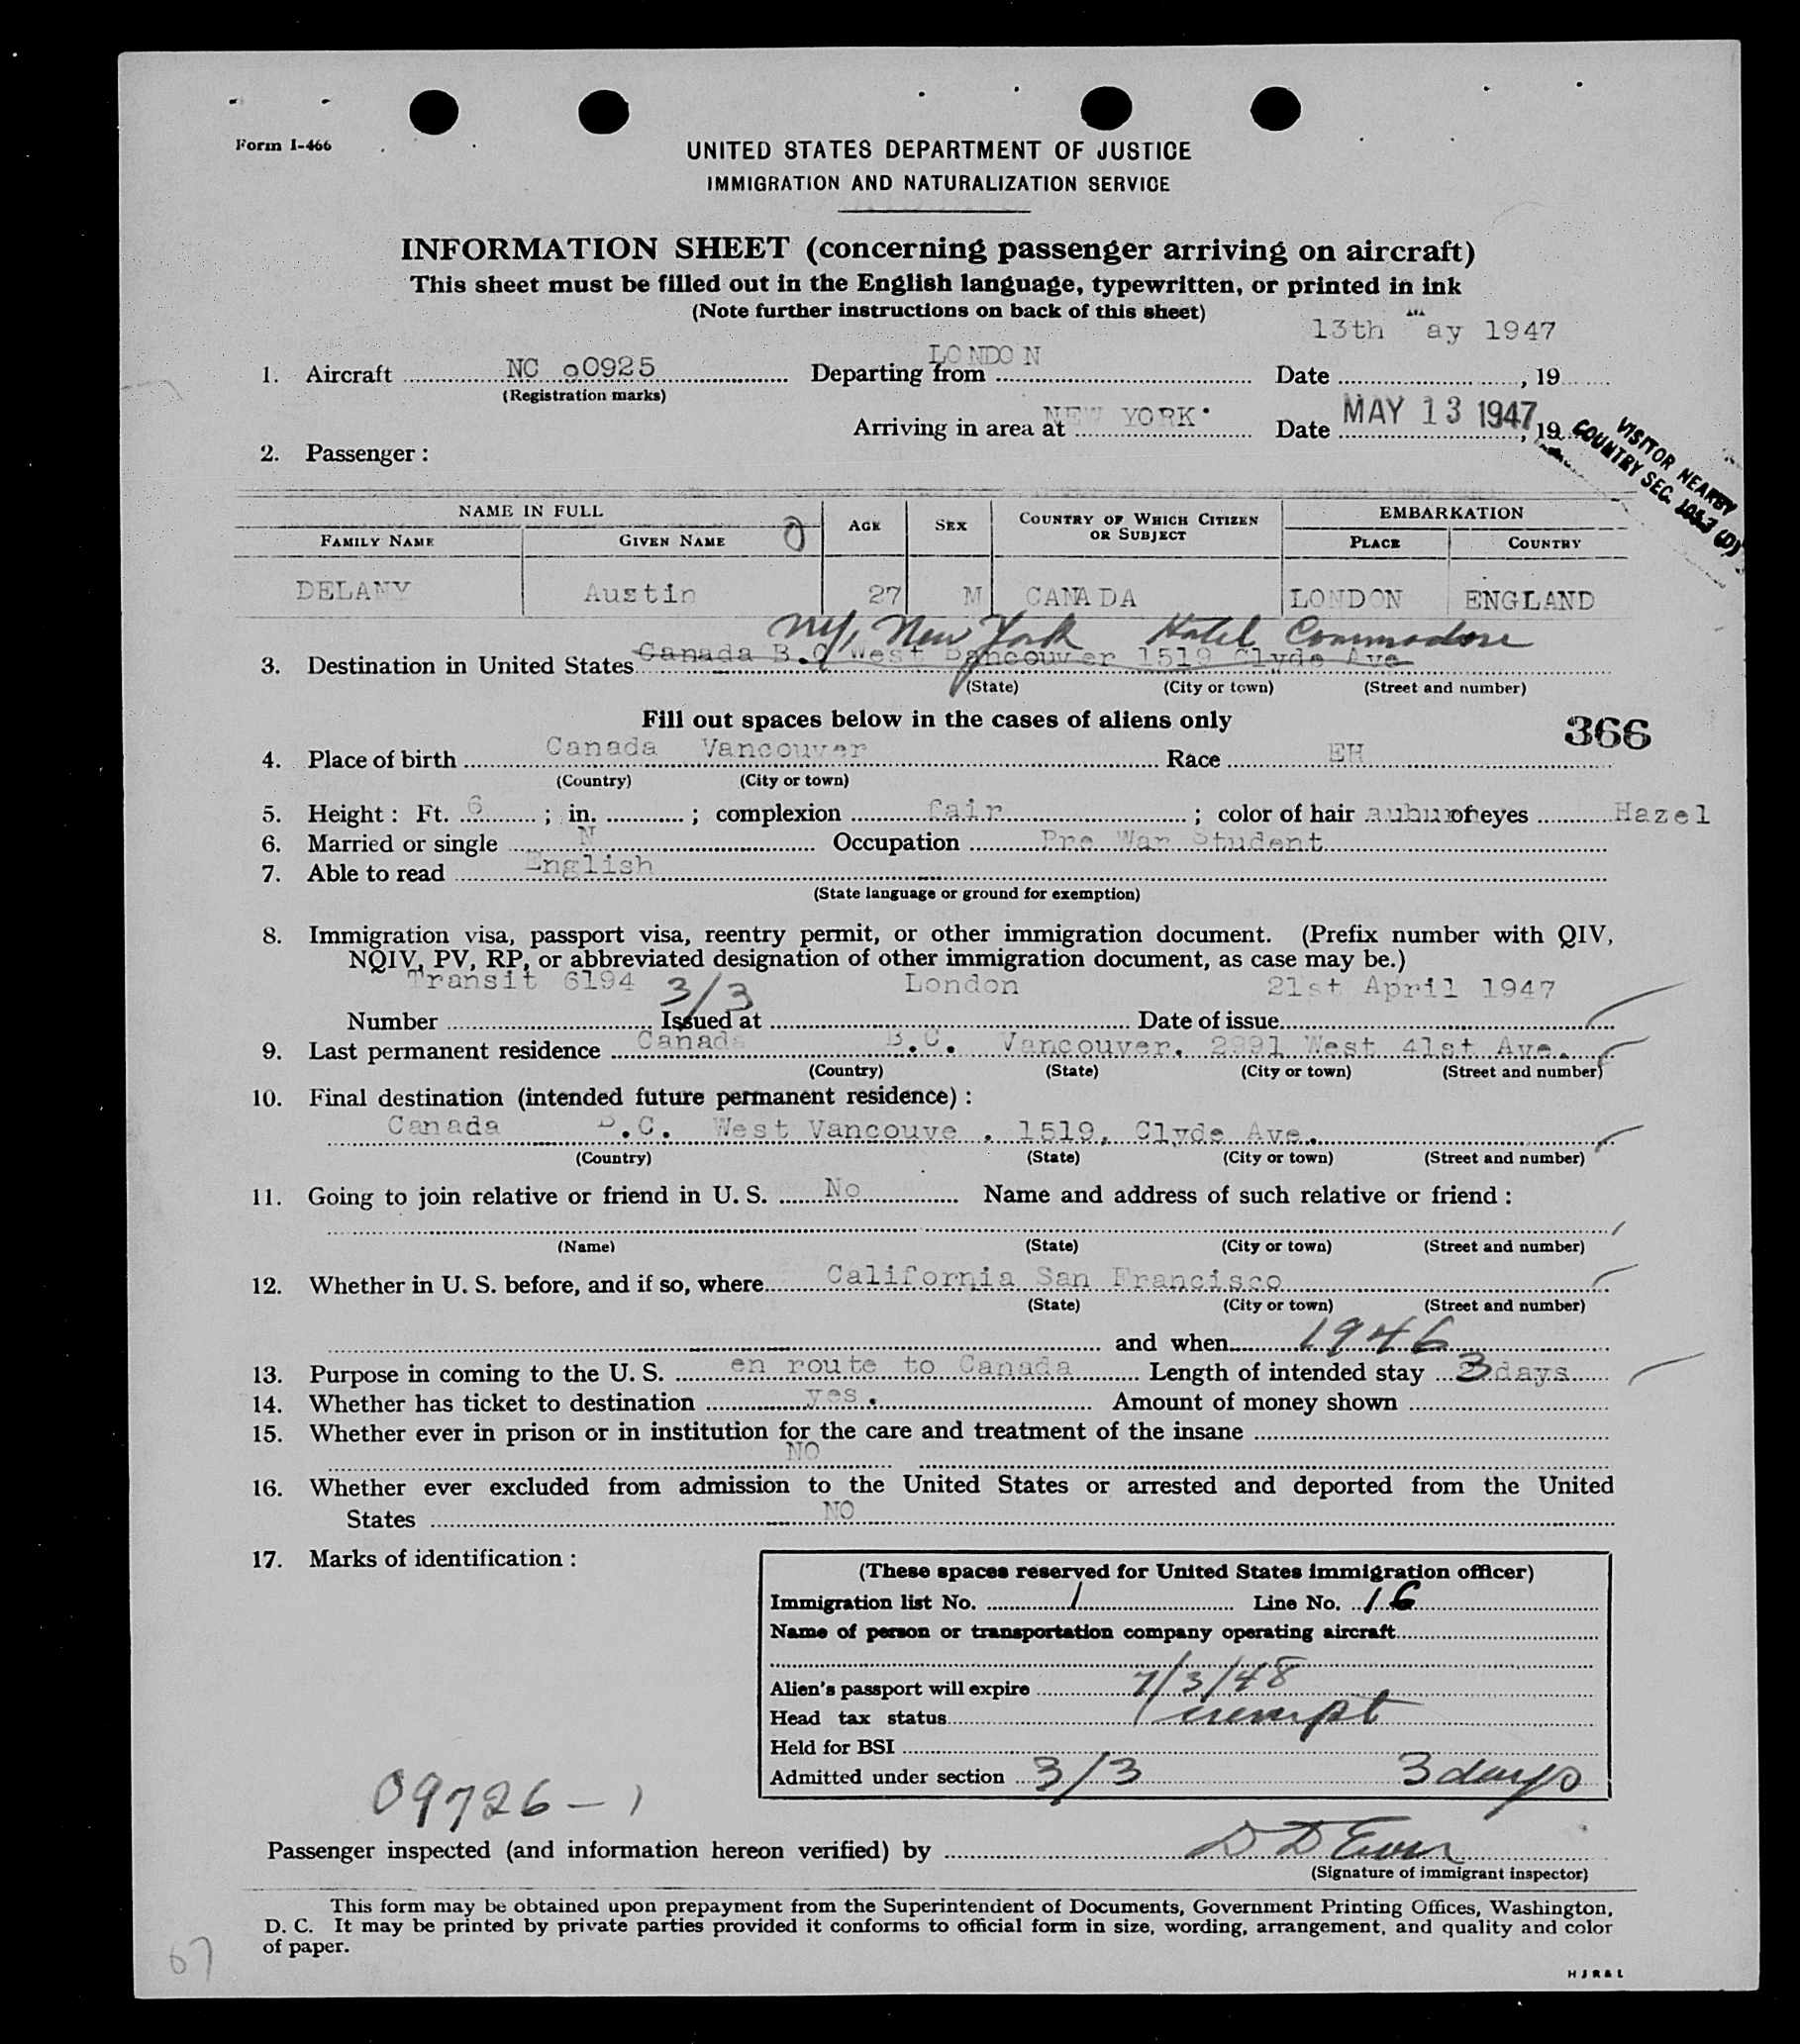 Form I-466
UNITED STATES DEPARTMENT OF JUSTICE
IMMIGRATION AND NATURALIZATION SERVICE
INFORMATION SHEET (concerning passenger arriving on aircraft)
This sheet must be filled out in the English language, typewritten, or printed in ink
(Note further instructions on back of this sheet)
13th May 1947
1. Aircraft NC 90925 Departing from LONDON Date , 19
(Registration marks)
Arriving in area at NEW YORK Date MAY 13 1947, 19
VISITOR NEARBY
COUNTRY SEC.
2. Passenger :
NAME IN FULL AGE SEX COUNTRY OF WHICH CITIZEN OR SUBJECT EMBARKATION
FAMILY NAME GIVEN NAME PLACE COUNTRY
DELANY Austin 27 M CANADA LONDON ENGLAND
NY, New York Hotel Commodore
3. Destination in United States Canada B.C West Vancouver 1519 Clyde Ave
(State) (City or town) (Street and number)
Fill out spaces below in the cases of aliens only
366
4. Place of birth Canada Vancouver Race EH
(Country) (City or town)
5. Height : Ft. 6 ; in. ; complexion fair ; color of hair auburn of eyes Hazel
6. Married or single N Occupation Pre War Student
7. Able to read English
(State language or ground for exemption)
8. Immigration visa, passport visa, reentry permit, or other immigration document. (Prefix number with QIV,
NQIV, PV, RP, or abbreviated designation of other immigration document, as case may be.)
Transit 6194 3/3 London 21st April 1947
Number Issued at Date of issue
9. Last permanent residence Canada B.C. Vancouver. 2991 West 41st Ave.
(Country) (State) (City or town) (Street and number)
10. Final destination (intended future permanent residence) :
Canada B.C. West Vancouve . 1519, Clyde Ave.
(Country) (State) (City or town) (Street and number)
11. Going to join relative or friend in U. S. No Name and address of such relative or friend :
(Name) (State) (City or town) (Street and number)
12. Whether in U. S. before, and if so, where California San Francisco
(State) (City or town) (Street and number)
and when 1946
13. Purpose in coming to the U. S. en route to Canada Length of intended stay 3 days
14. Whether has ticket to destination yes. Amount of money shown
15. Whether ever in prison or in institution for the care and treatment of the insane
NO
16. Whether ever excluded from admission to the United States or arrested and deported from the United
States NO
17. Marks of identification :
(These spaces reserved for United States immigration officer)
Immigration list No. 1 Line No. 16
Name of person or transportation company operating aircraft
Alien's passport will expire 7/3/48
Head tax status exempt
Held for BSI
Admitted under section 3/3 3 days
09726-1
Passenger inspected (and information hereon verified) by
(Signature of immigrant inspector)
This form may be obtained upon prepayment from the Superintendent of Documents, Government Printing Offices, Washington,
D. C. It may be printed by private parties provided it conforms to official form in size, wording, arrangement, and quality and color
of paper.
67
HJR&L